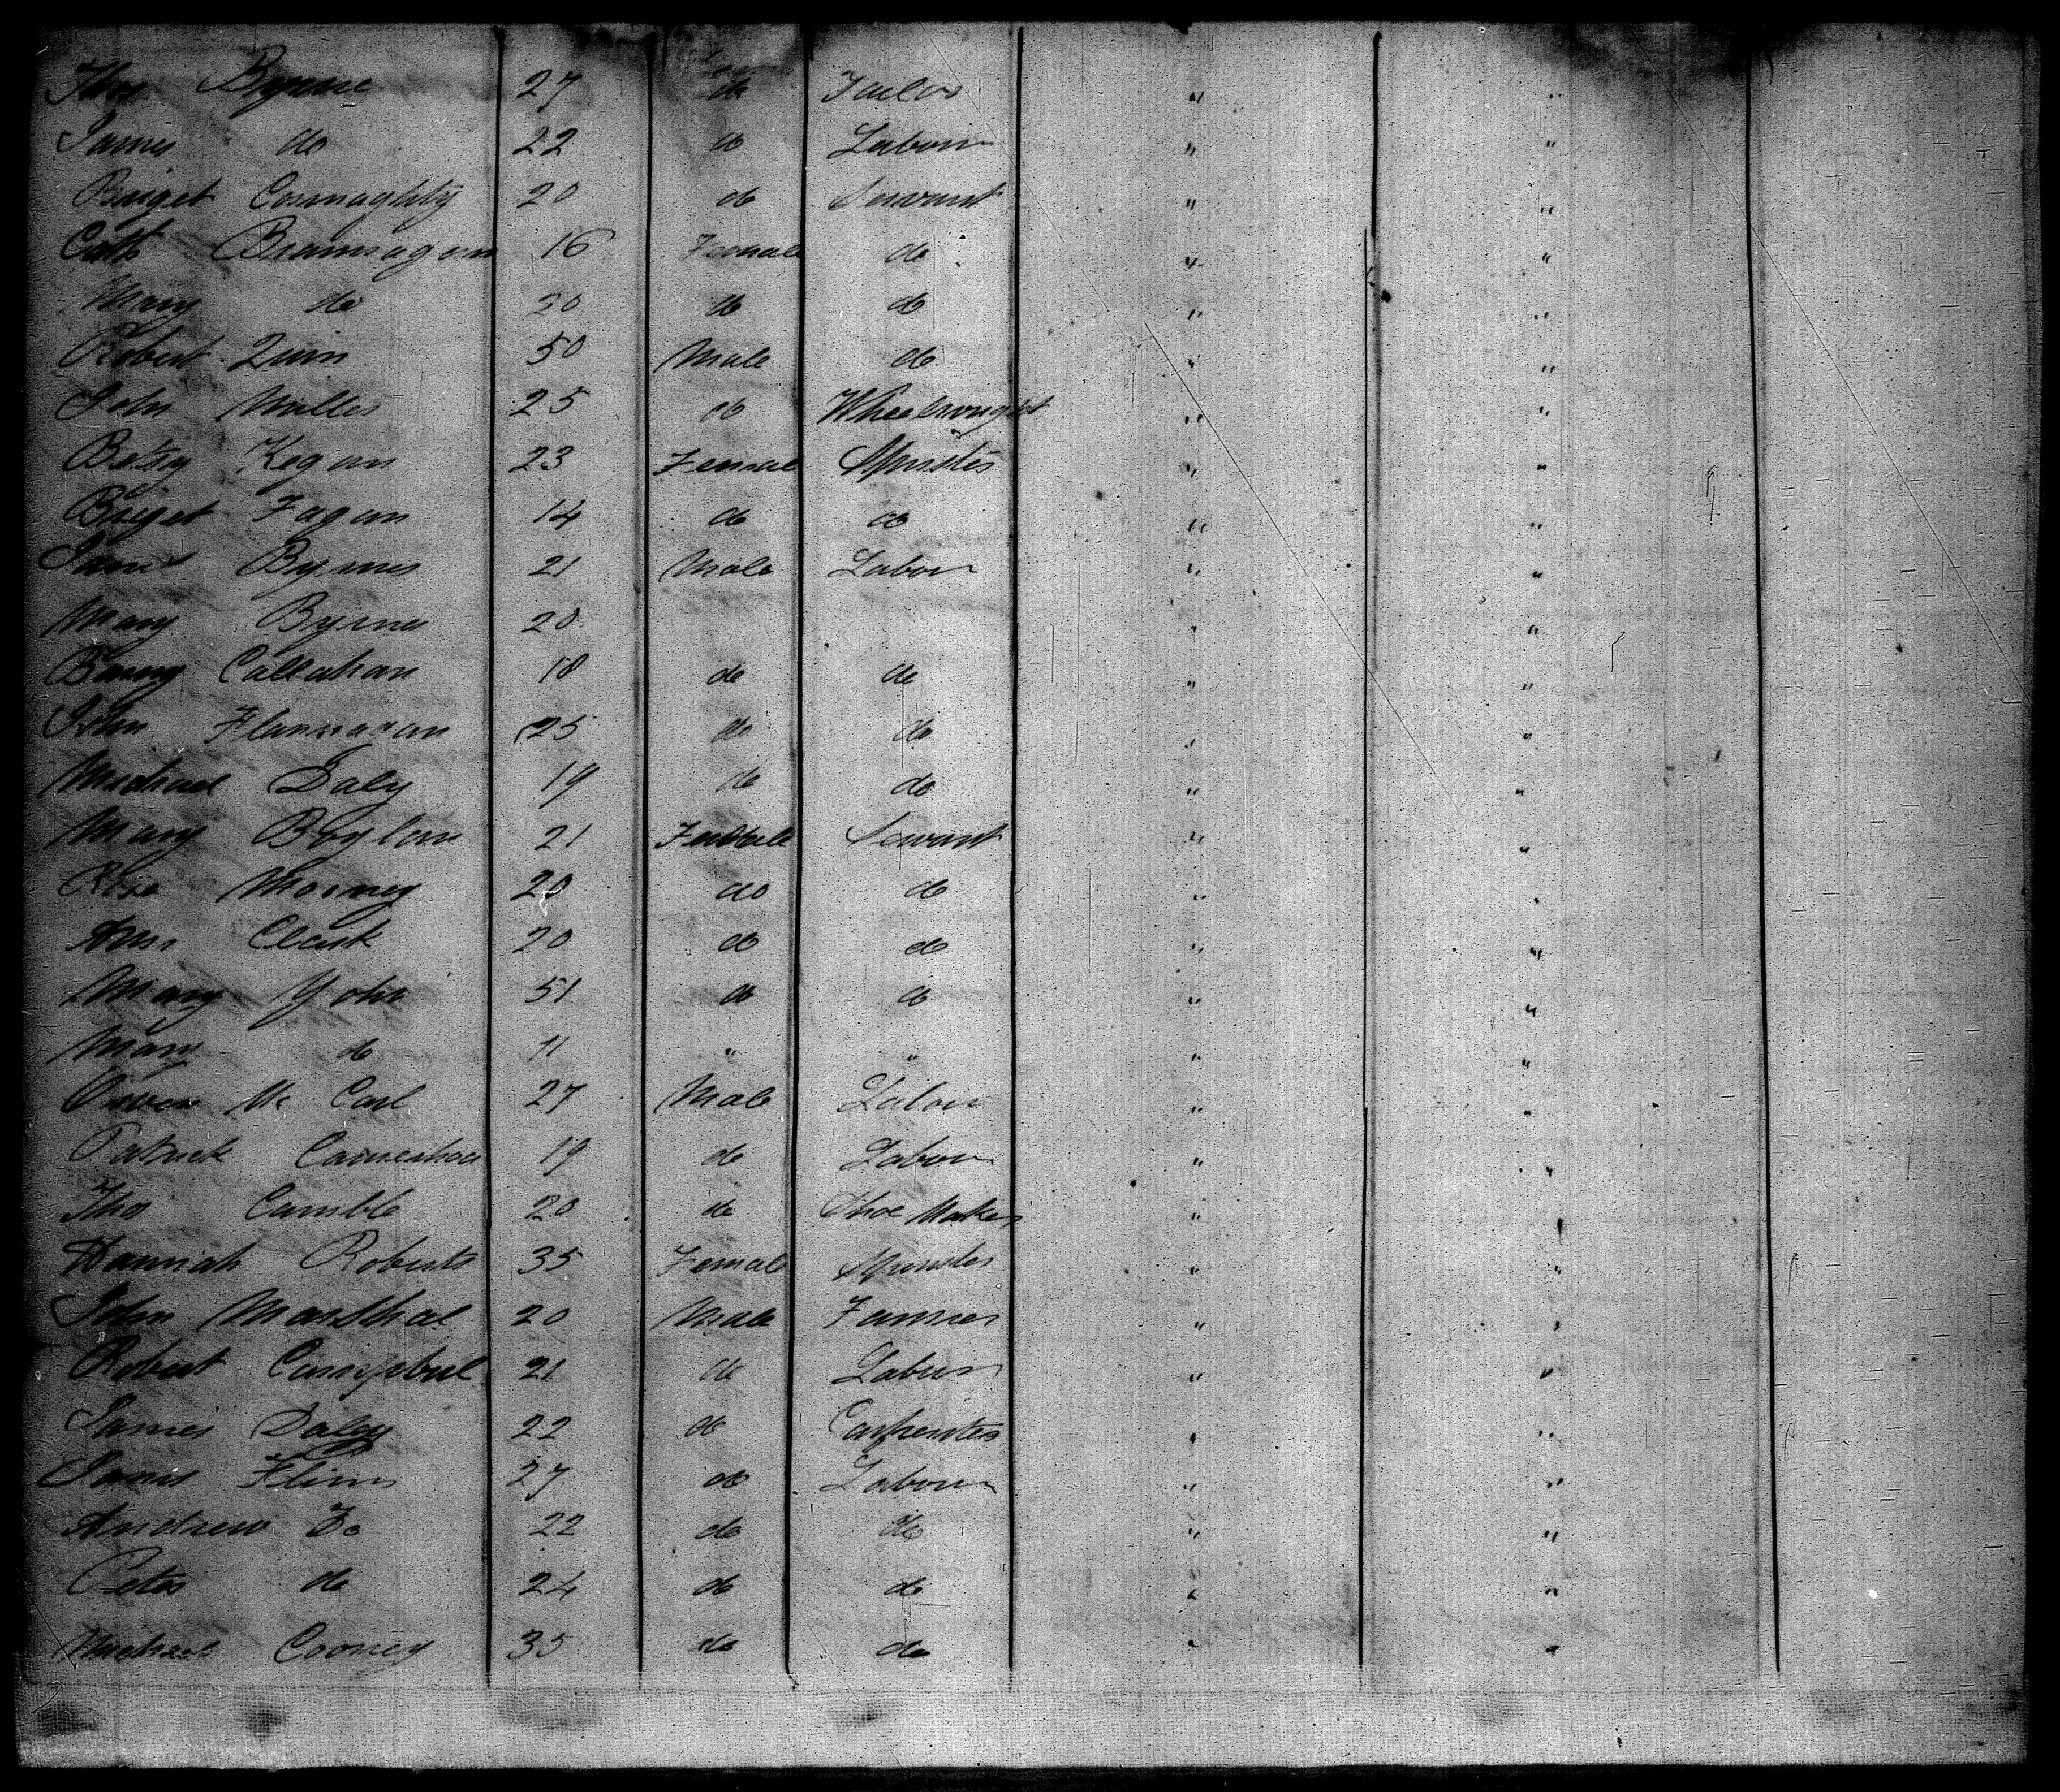 Thos Byrne 27 do Tailor " "
James do 22 do Labour " "
Briget Connaghty 20 do Servant " "
Cath Brannagan 16 Female do " "
Mary do 20 do do " "
Robert Quin 50 Male do " "
John Miller 25 do Wheelwright " "
Betsy Kegan 23 Female Spinster " "
Briget Fagan 14 do do " "
James Byrnes 21 Male Labour " "
Mary Byrnes 20 " "
Barny Callahan 18 do do " "
John Flannagan 25 do do " "
Michael Daly 19 do do " "
Mary Boylan 21 Female Servant " "
Rose Morney 20 do do " "
Ann Clark 20 do do " "
Mary 51 do do " "
Mary do 11 " " " "
Owen Mc Carl 27 Male Labour " "
Patrick 19 do Labour " "
Thos Camble 20 do Shoe Maker " "
Hannah Roberts 35 Female Spinster " "
John Marsthal 20 Male Farmer " "
Robert Campbul 21 do Labour " "
James Daley 22 do Carpenter " "
James Flinn 27 do Labour " "
Andrew Do 22 do do " "
Peter do 24 do do " "
Michael Cooney 35 do do " "